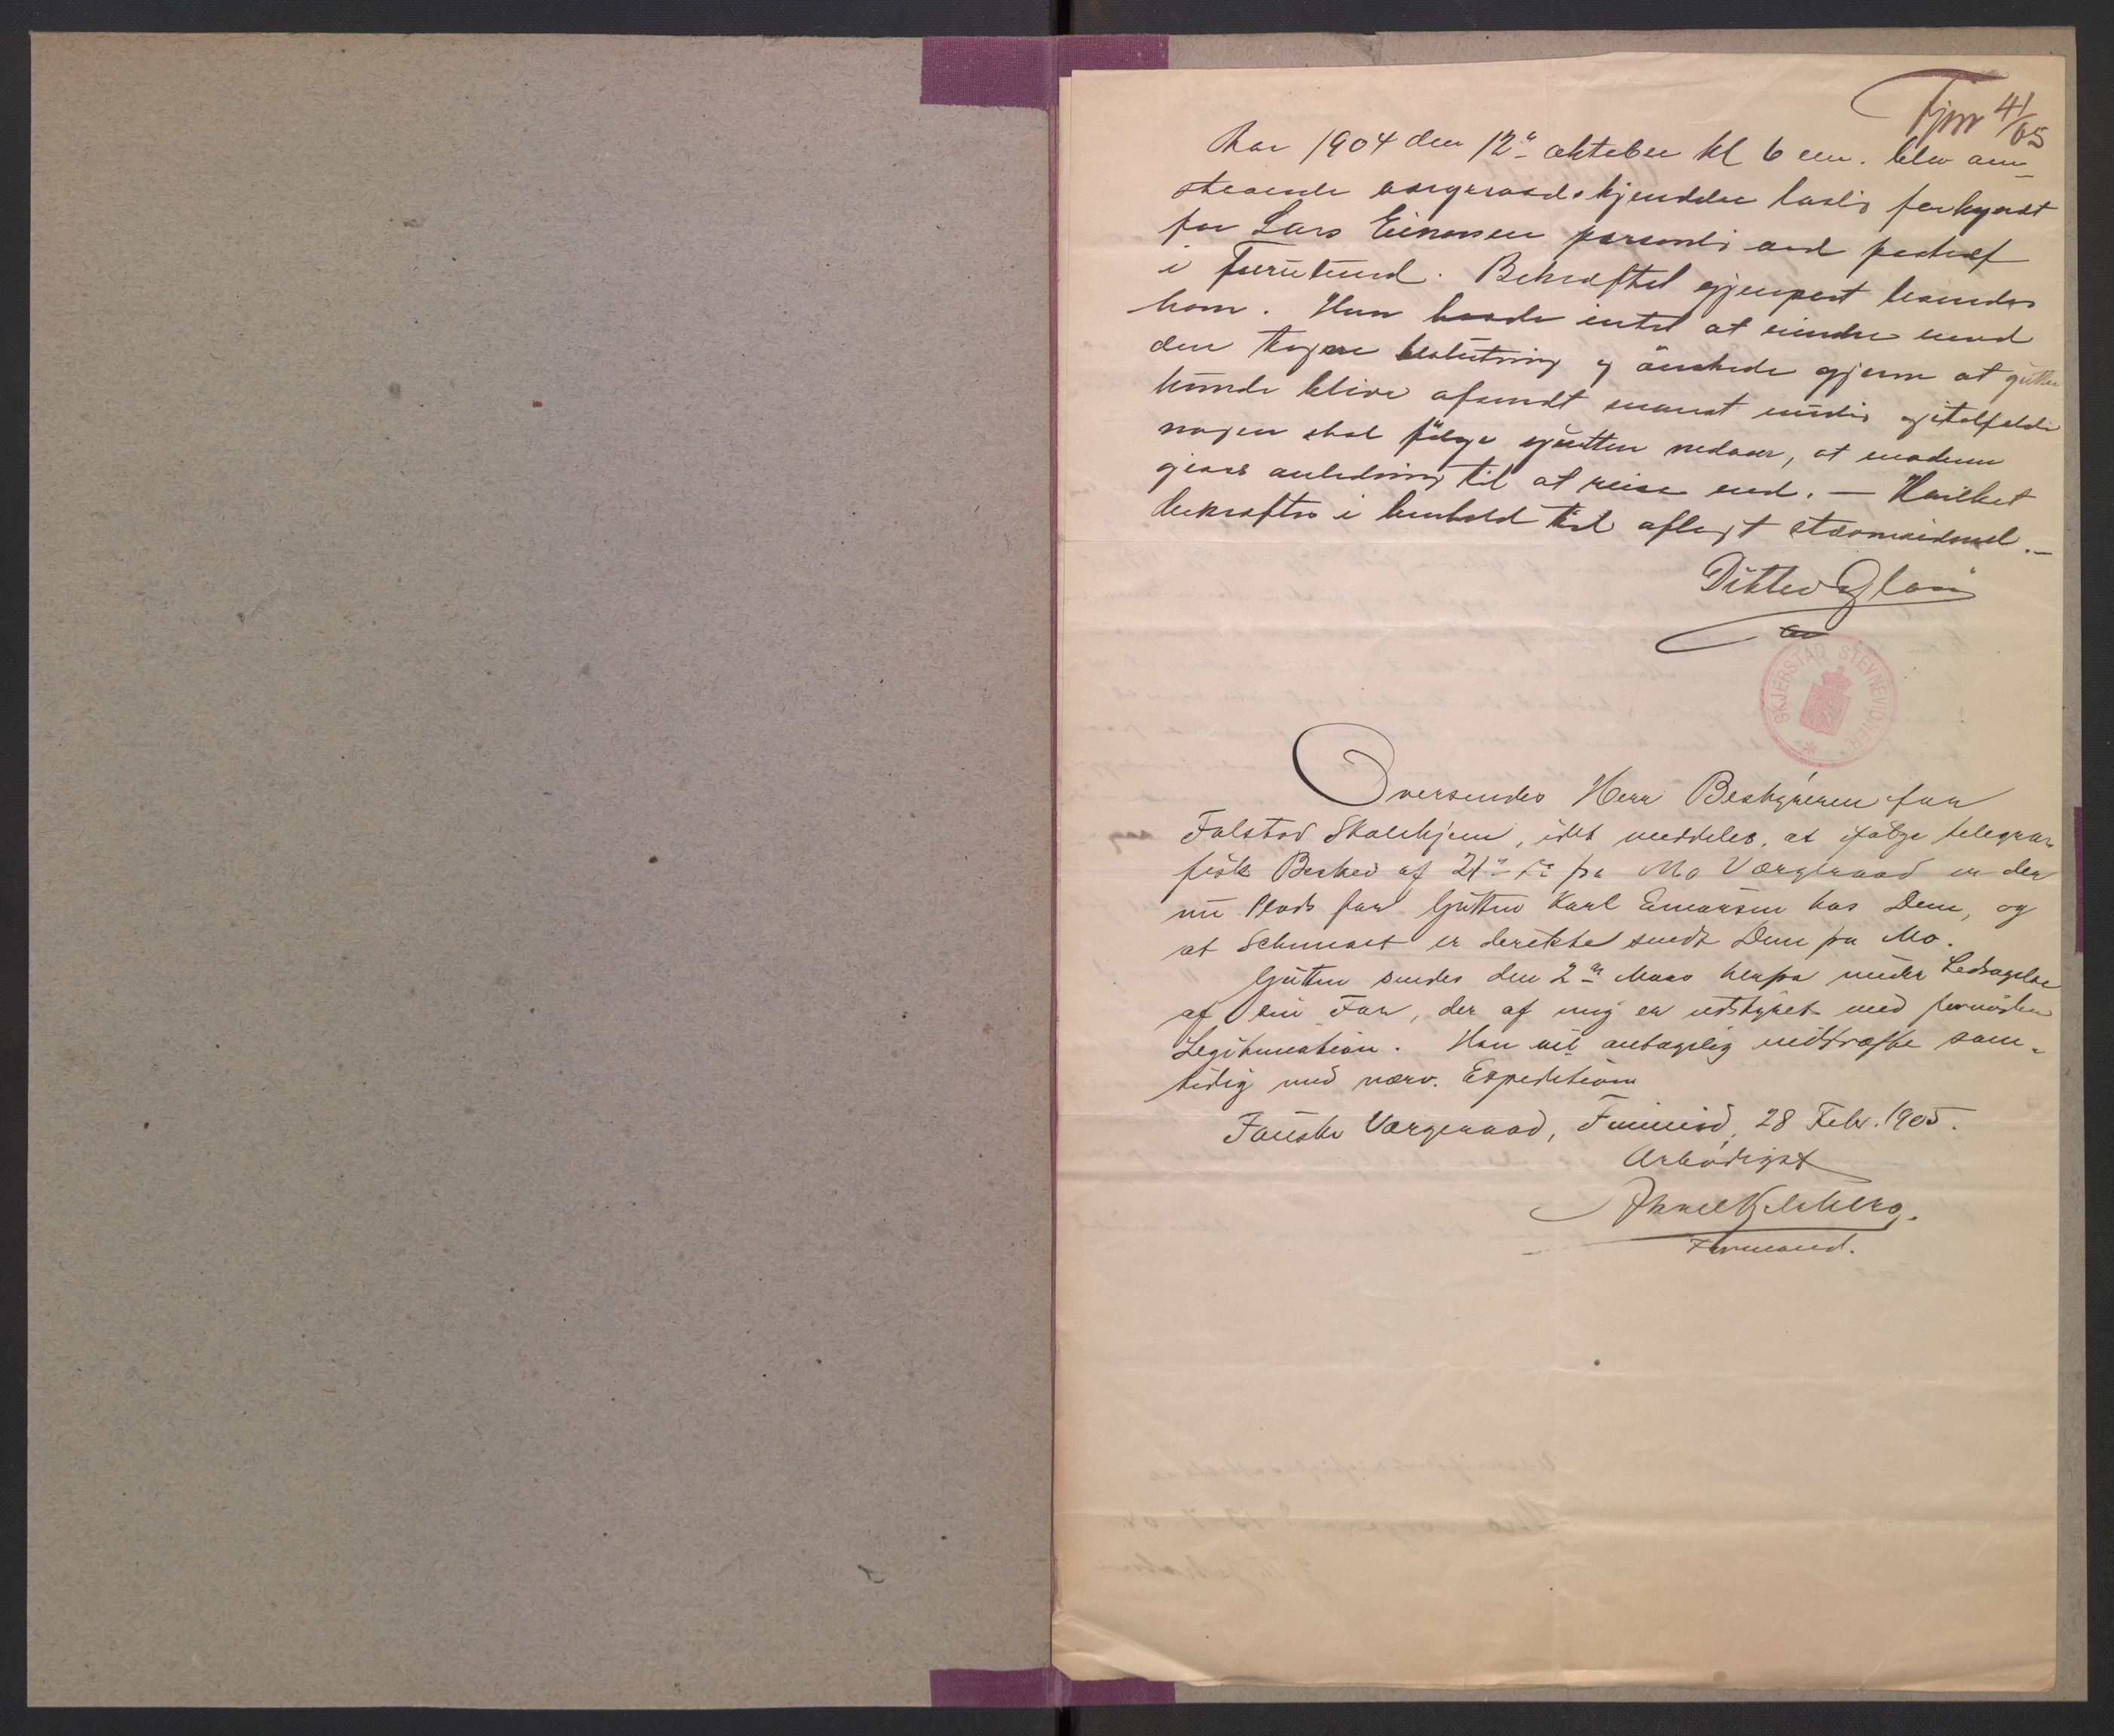 Fjnr 4/05
Aar 1904 den 12" oktober kl 6 em. blev om-
staaende vergeraadskjendelse lovlig forkyndt
for Lars Einarsen personlig ved
i Furulund. Bekræftet gjenpart levendes
ham. Han havde intet at indre mod
den tagne beslutning og ønskede gjerne at gutten
kunde blive afsendt snarest mulig og itilfælde
nogen skal følge gutten nedover, at moderen
gives anledning til at reise med. — Hvilket
bekræftes i henhold til aflagt stevneidmed.—
Ditlev Olsen
SKJERSTAD STEVNEVIDNER
Oversendes Herr Bestyreren for
Falstad Skolehjem, idet meddeles, at ifølge telegra-
fisk Besked af 21" ds fra Mo Værgeraad er der
nu Plads for Gutten Karl Einarsen hos Dem, og
at Schemaet er derekte sendt Dem fra Mo.
Gutten sendes den 2den Mars herfra under Ledsagelse
af sin Far, der af mig er udstyret med fornøden
Legitimation. Han vil antagelig indtræffe sam-
tidig med nærv. Expedition
Fauske Værgeraad, Finneid, 28 Febr. 1905.
Ærbødigst
Formand.